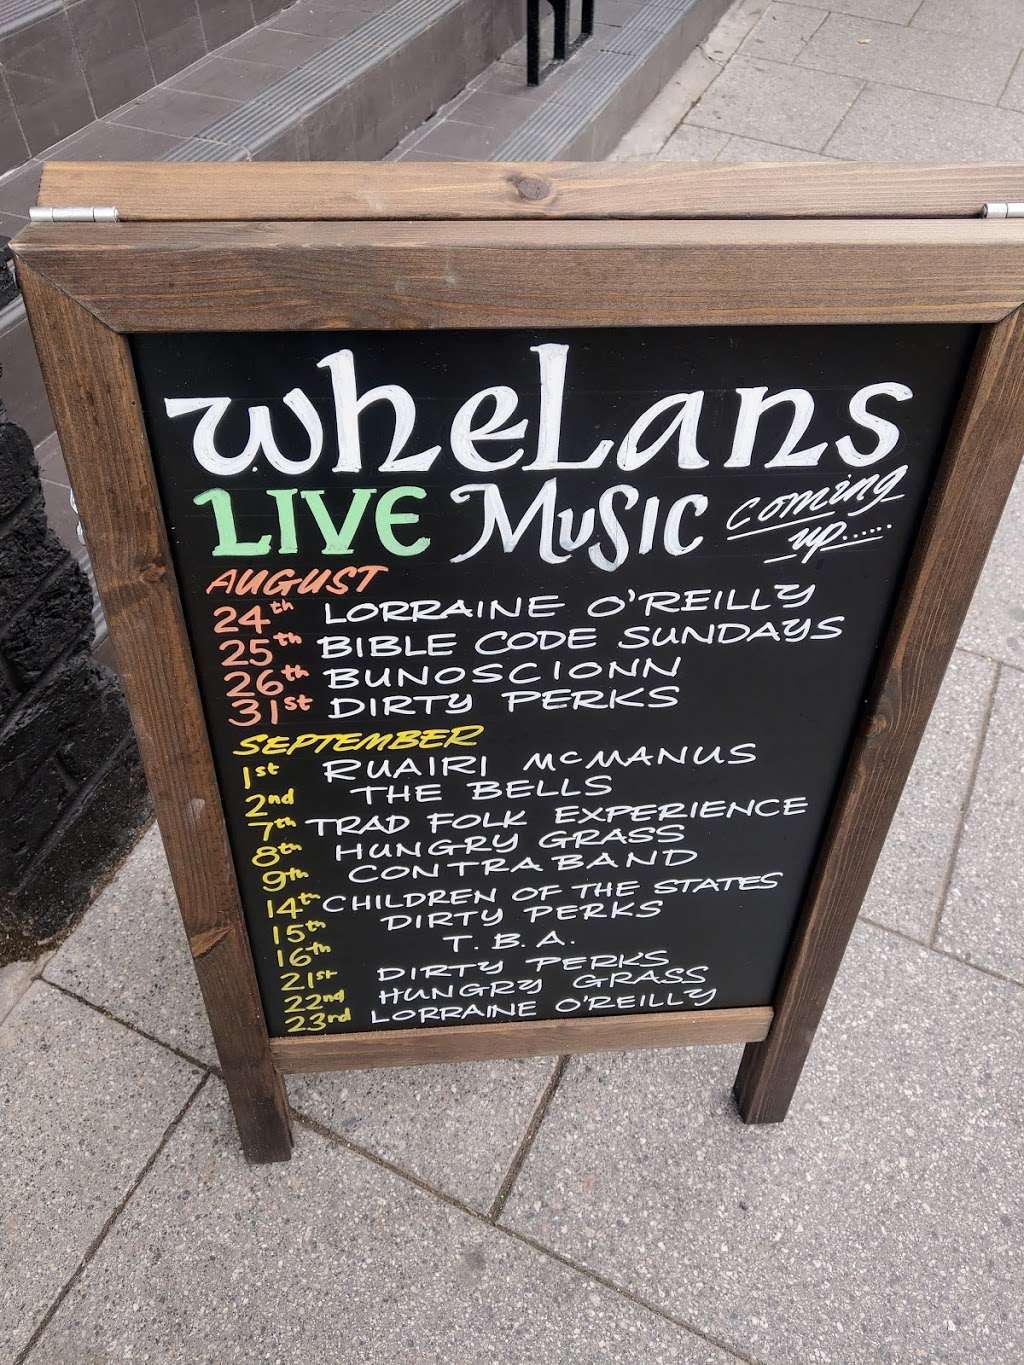 whelans
LIVE MUSIC coming up......
AUGUST
24th LORRAINE O'REILLY
25th BIBLE CODE SUNDAYS
26th BUNOSCIONN
31st DIRTY PERKS
SEPTEMBER
1st RUAIRI McMANUS
2nd THE BELLS
7th TRAD FOLK EXPERIENCE
8th HUNGRY GRASS
9th CONTRABAND
14th CHILDREN OF THE STATES
15th DIRTY PERKS
16th T.B.A.
21st DIRTY PERKS
22nd HUNGRY GRASS
23rd LORRAINE O'REILLY